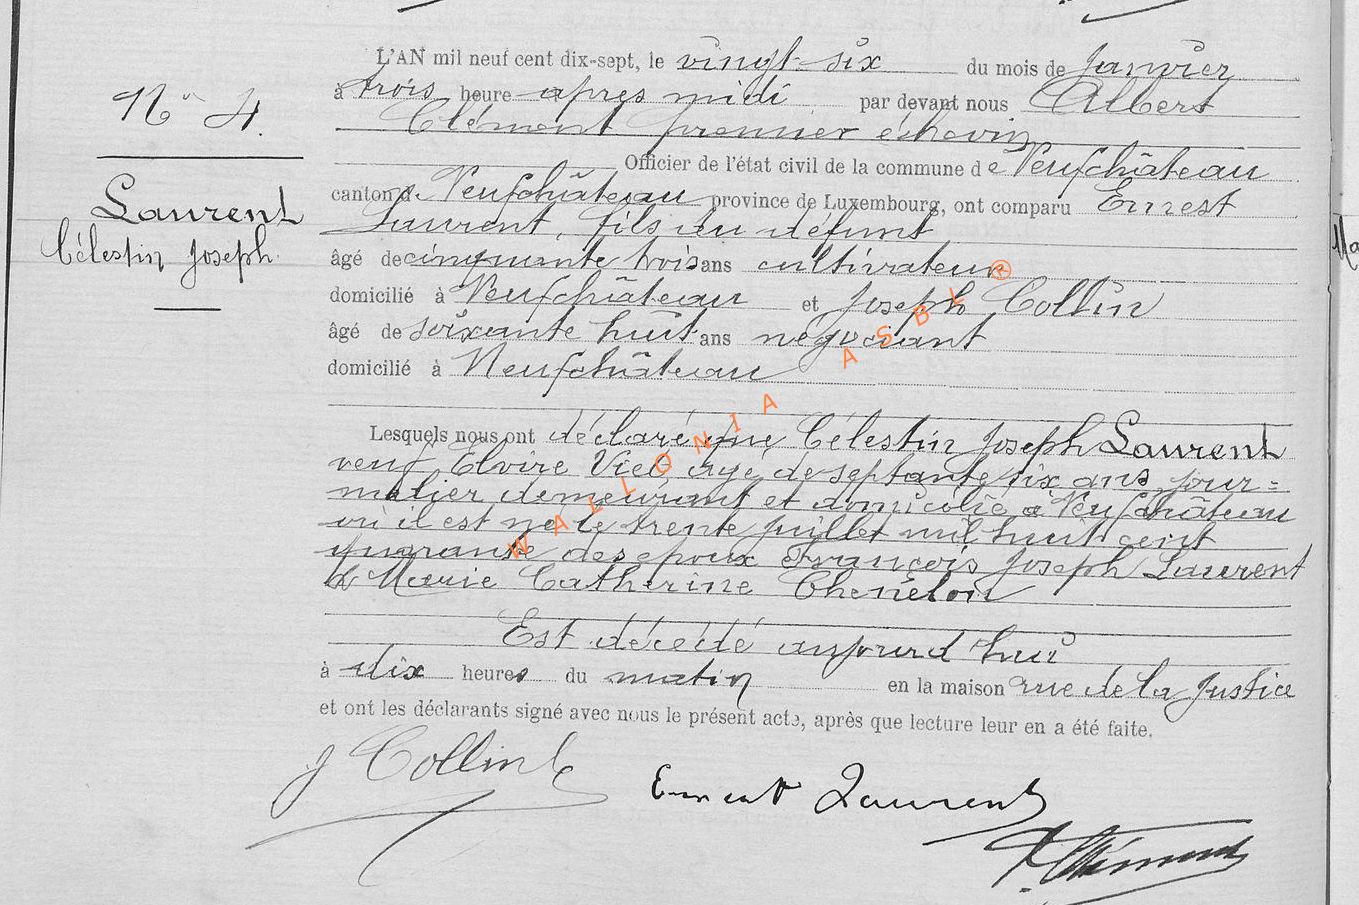 L'AN mil neuf cent dix-sept, le vingt-six du mois de Janvier
à trois heure après midi par devant nous Albert
Clément premier échevin
Officier de l'état civil de la commune de Neufchâteau
canton de Neufchâteau province de Luxembourg, ont comparu Ernest
Laurent, fils du défunt
âgé de cinquante trois ans cultivateur
domicilié à Neufchâteau et Joseph Collin
âgé de soixante huit ans négociant
domicilié à Neufchâteau
Lesquels nous ont déclaré que Célestin Joseph Laurent
veuf Elvire agé de septante six ans jour=
nalier demeurant et domicilié à Neufchâteau
où il est né le trente juillet mil huit cent
quarante des époux François Joseph Laurent
& Marie Catherine
Est décédé aujourd'hui
à dix heures du matin en la maison rue de la Justice
et ont les déclarants signé avec nous le présent acte, après que lecture leur en a été faite.
J Collin
Ernest Laurent
Clément
No 4.
Laurent
Célestin Joseph.
WALLONIA ASBL ®